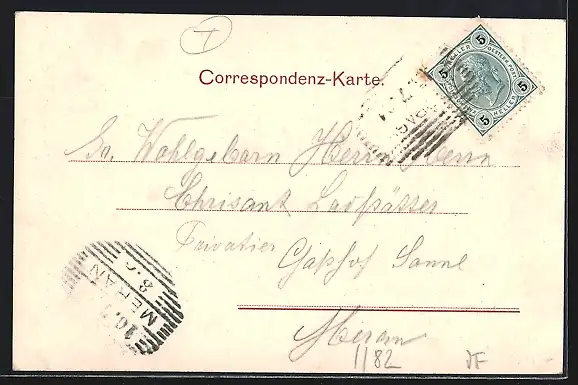 Correspondenz-Karte.
5 5
HELLER HELLER
5 5
Sr. Wohlgeborn Herrn Herrn
Chrisant
Privatier
Gasthof Sonne
MERAN
Meran
1/82